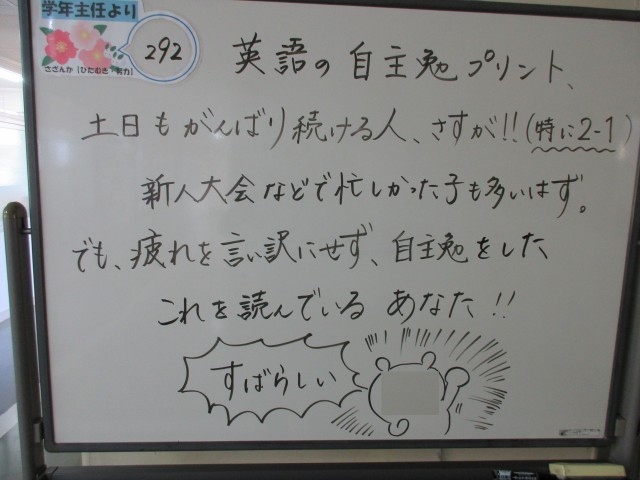 学年主任より
292
さざんか「ひたむき・努力」
英語の自主勉プリント、
土日もがんばり続ける人、さすが!!(特に2-1)
新人大会などで忙しかった子も多いはず。
でも、疲れを言い訳にせず、自主勉をした、
これを読んでいるあなた!!
すばらしい